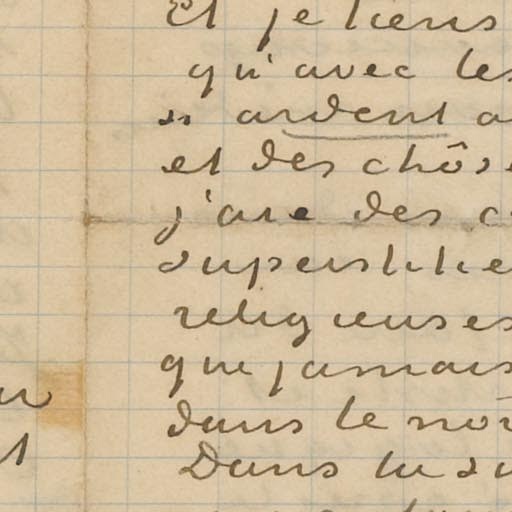 Et je tiens
qu'avec les
si ardent a
et des chôse
j'aie des c
superstitie
religieuses
que jamais
dans le nor
Dans tu su